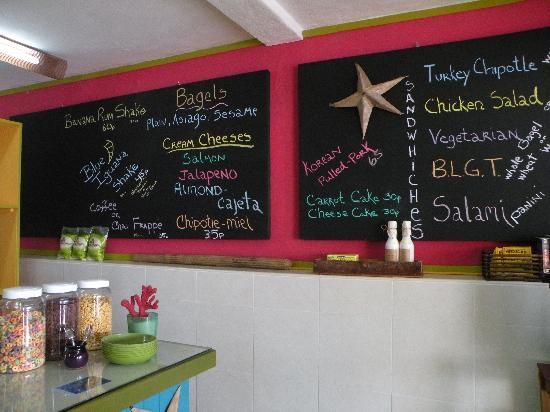 Banana Rum Shake
60p
Blue
Iguana
Shake
45p
Coffee
or
Chai Frappe
35p
Bagels
Plain, Asiago, Sesame
Cream Cheeses
Salmon
Jalapeno
Almond-
Cajeta
Chipotle-miel
35p
Korean
Pulled-Pork
65
Carrot Cake 30p
Cheese Cake 30p
SANDWHICHES
Turkey Chipotle
Chicken Salad
Vegetarian
B.L.G.T.
Salami
Whole
Wheat
Bagel
or
Panini